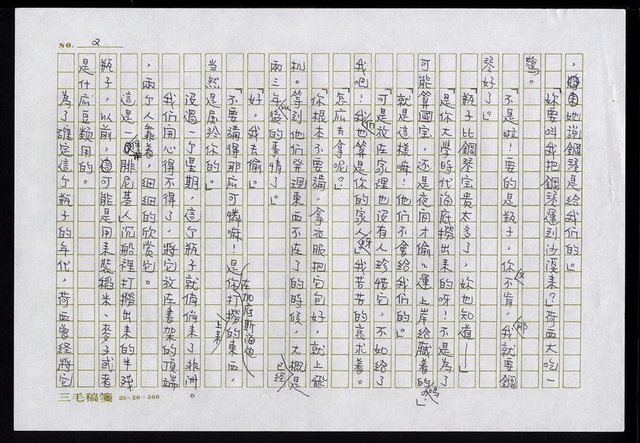 NO. 2
，由她說鋼琴是給我們的。
「妳要叫我把鋼琴運到沙漠來？」荷西大吃一
驚。
「不是啦！要的是瓶子，你又不肯，那我就要鋼
琴好了。」
「瓶子比鋼琴寶貴太多了，妳也知道——」
「是你大學時代海底撈出來的呀！不是為了
可能算國寶，還是夜間才偷偷運上岸給藏着的嗎
「就是這樣嘛！他們不會給我們的。」
「可是放在家裡也沒有人珍惜它，不如給了
我吧！我也算是你的家人呀」我苦苦的哀求着。
「怎麼去拿呢？」
「你根本不要講，拿衣服把它包好，就上飛
机。等到他們發現東西不在了的時候，大概已經是
兩三年以後的事情了。」
「好，我去偷。」
「不要講得那麼可憐嘛！是你在加底斯海邊打撈上來的東西，
當然是屬於你的。」
沒過一个星期，這个瓶子就偷偷來了非洲。
我們用心得不得了，將它放在書架的頂端
，兩个人靠着，細細的欣賞它。
這是一隻腓尼基人沉船裡打撈出來的半殘
瓶子，以前，可能是用來裝稻米、麥子或者
是什麼豆類用的。
為了確定這个瓶子的年代，荷西曾經將它
三毛稿箋 25×20=500